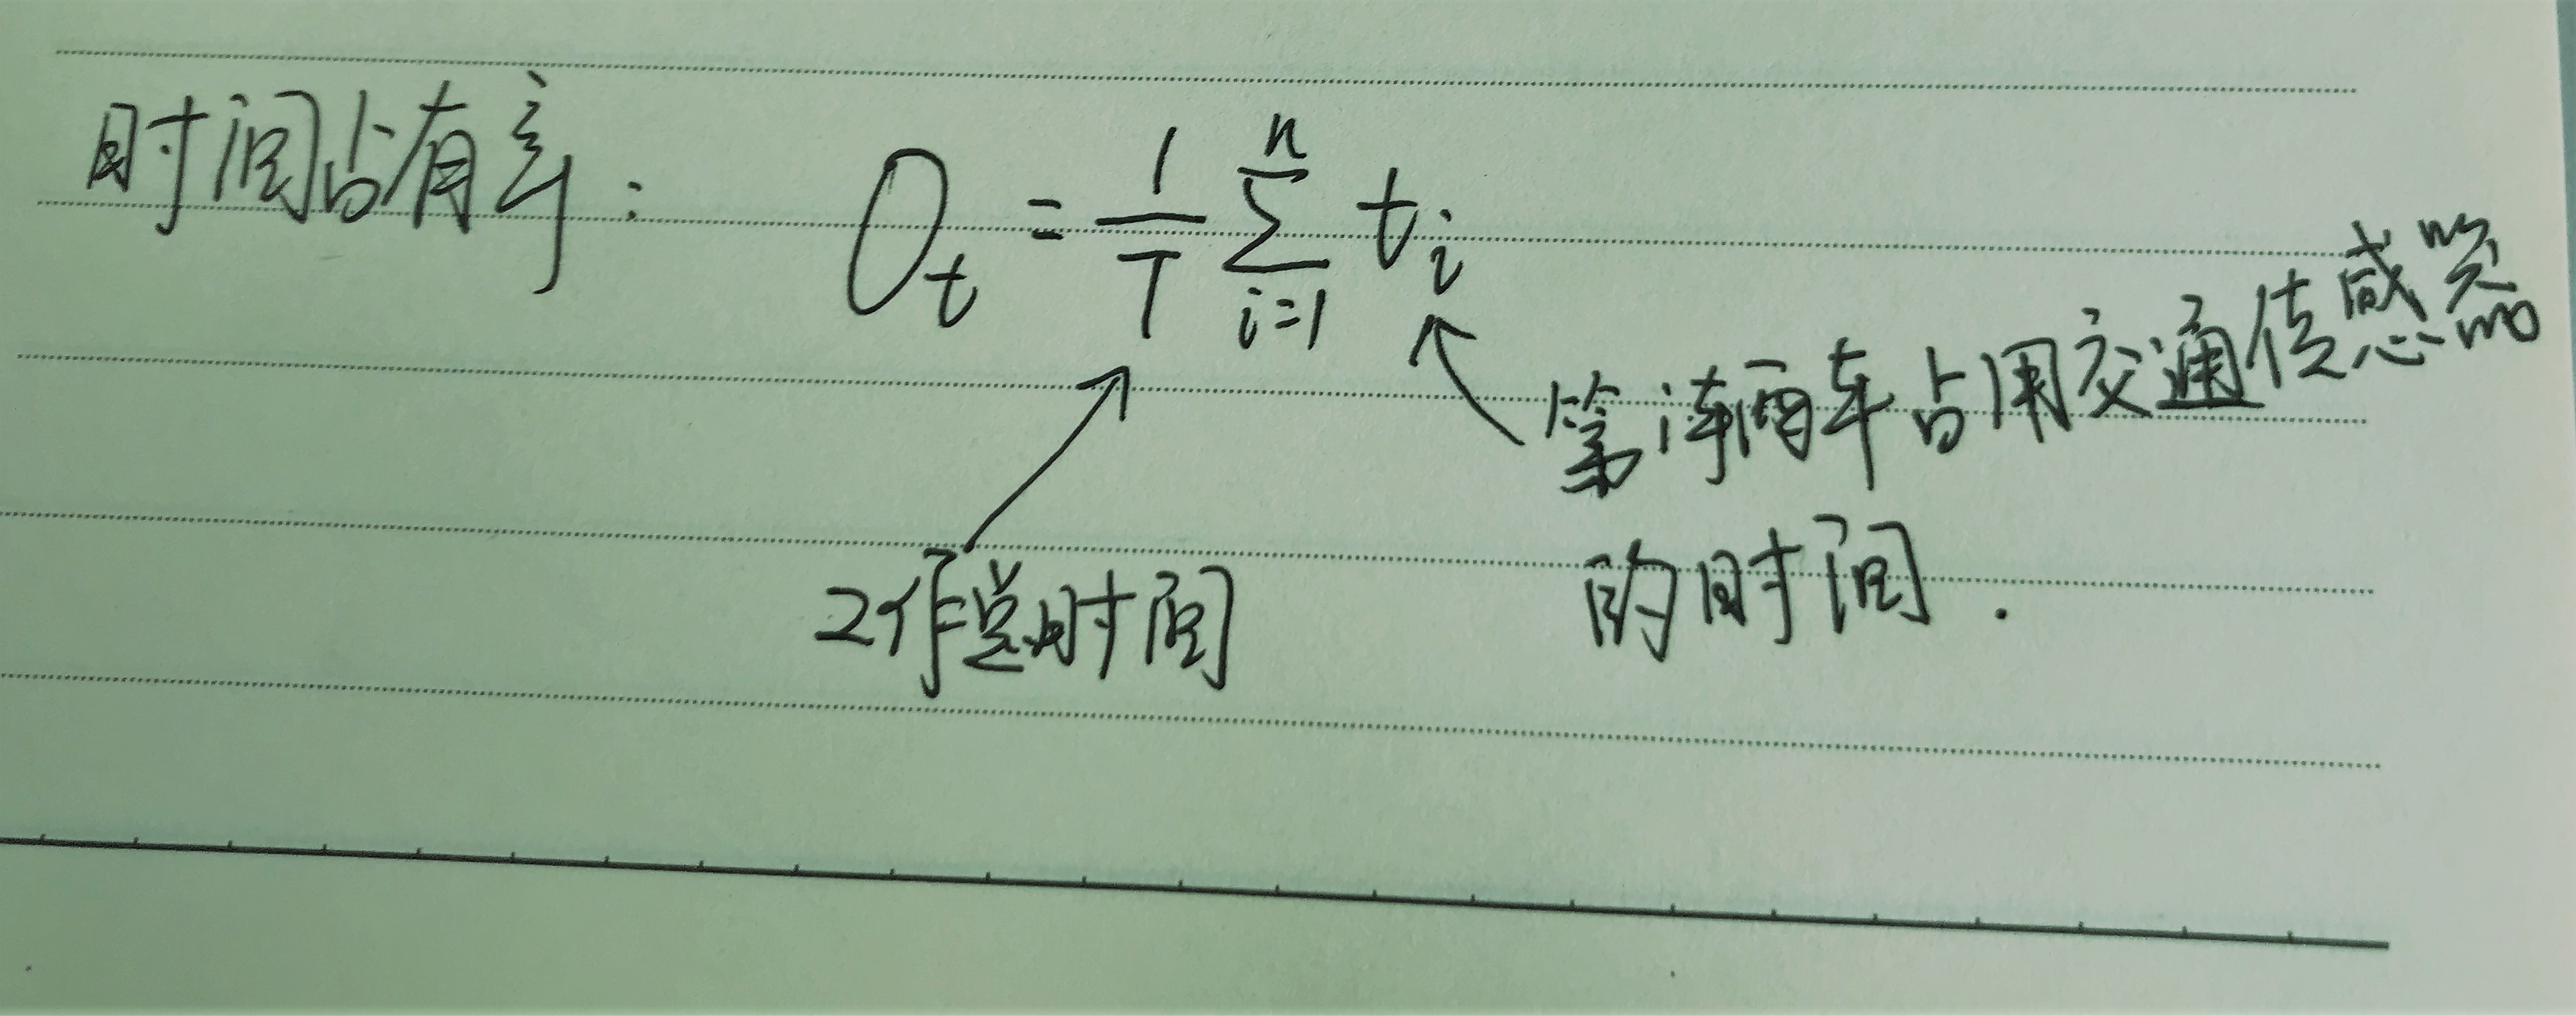 时间占有率： O_t = 1/T ∑_{i=1}^{n} t_i
第i辆车占用交通传感器
的时间.
工作总时间